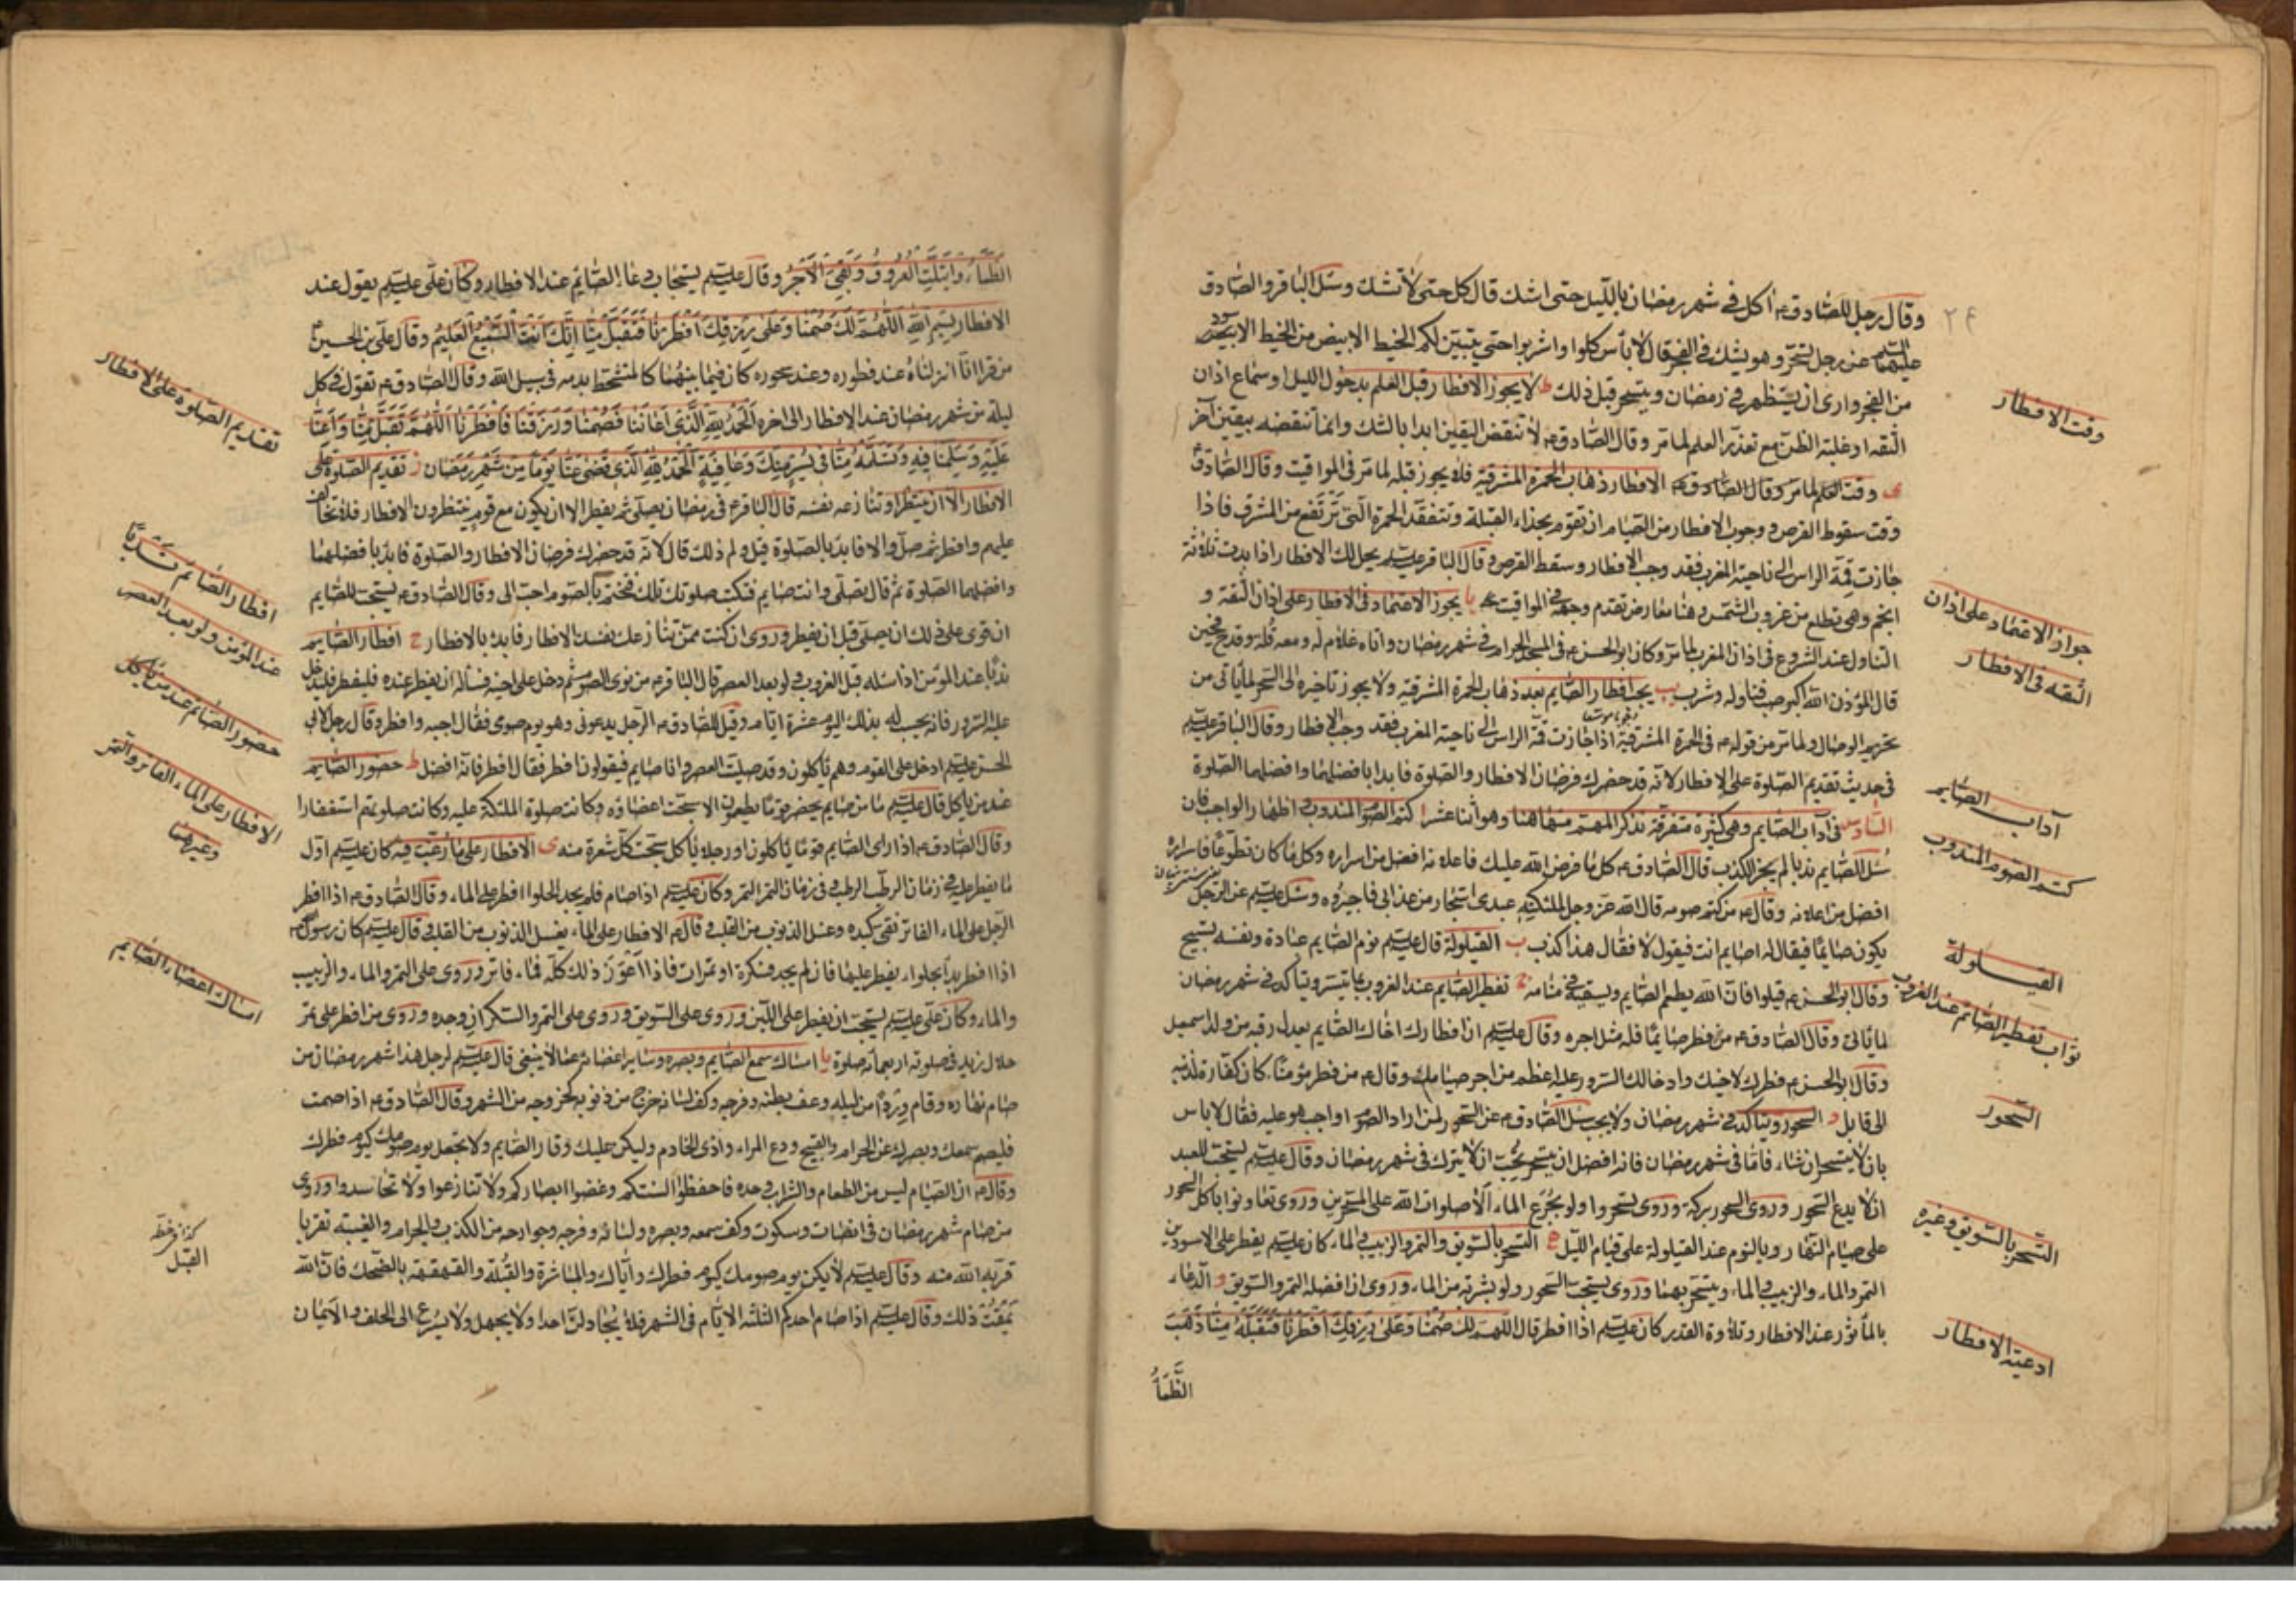 وقال رجل للصادق ع آكل في شهر رمضان بالليل حتى اشك قال كل حتى لا تشك وسئل الباقر والصادق
عليهما السلام عن رجل تسحر وهو يشك في الفجر قال لا بأس كلوا واشربوا حتى يتبين لكم الخيط الابيض من الخيط الاسود
من الفجر وارى ان يستظهر في رمضان ويتسحر قبل ذلك ط لا يجوز الافطار قبل العلم بدخول الليل او سماع اذان
الثقه او غلبة الظن مع تعذر العلم لما مر وقال الصادق ع لا تنقض اليقين ابدا بالشك وانما تنقضه بيقين آخر
ى وقت العلم لما مر وقال الصادق ع الافطار ذهاب الحمرة المشرقية فلا يجوز قبله لما مر في المواقيت وقال الصادق ع
وقت سقوط القرص ووجوب الافطار من الصيام ان تقوم بحذاء القبلة وتتفقد الحمرة التى ترتفع من المشرق فاذا
جازت قمة الراس الى ناحية المغرب فقد وجب الافطار وسقط القرص وقال الباقر عليه السلم يحل لك الافطار اذا بدت ثلاثة
انجم وهى تطلع من غروب الشمس وهنا معارض تقدم وجهه في المواقيت يا يجوز الاعتماد في الافطار على اذان الثقة و
التناول عند الشروع في اذان المغرب لما مر وكان ابو الحسن ع في المسجد الحرام في شهر رمضان واتاه غلام له ومعه قلة وقدح فحين
قال المؤذن الله اكبر صب فناوله وشرب يب يجب افطار الصايم بعد ذهاب الحمرة المشرقية ولا يجوز تاخيره الى السحر لما ياتى من
تحريم الوصال ولما مر من قوله ع في الحمرة المشرقية اذا جازت قمة الراس الى ناحية المغرب فقد وجب الافطار وقال الباقر عليه السلم
في حديث تقديم الصلوة على الافطار لانه قد حضرك فرضان الافطار والصلوة فابدا بافضلهما وافضلهما الصلوة
السادس في آداب الصايم وهى كثيرة متفرقة نذكر المهم منها هنا وهو اثنا عشر ا كتم الصوم المندوب واظهار الواجب فان
سئل الصايم ندبا لم يجز الكذب قال الصادق ع كل ما فرض الله عليك فاعلانه افضل من اسراره وكل ما كان تطوعا فاسراره
افضل من اعلانه وقال ع من كتم صومه قال الله عز وجل لملئكته عبدى استجار من عذابى فاجيروه وسئل عليه السلم عن الرجل
يكون صائما فيقال له اصايم انت فيقول لا فقال هذا كذب ب القيلولة قال عليه السلم نوم الصايم عبادة ونفسه تسبيح
وقال ابو الحسن ع قيلوا فان الله يطعم الصايم ويسقيه في منامه ج تفطير الصايم عند الغروب بما تيسر ويتاكد في شهر رمضان
لما ياتى وقال الصادق ع من فطر صايما فله مثل اجره وقال عليه السلم ان افطارك اخاك الصايم يعدل رقبة من ولد اسمعيل
وقال ابو الحسن ع فطرك لاخيك وادخالك السرور عليه اعظم من اجر صيامك وقال ع من فطر مؤمنا كان كفارة لذنبه
الى قابل د السحور ويتاكد في شهر رمضان ولا يجب سئل الصادق ع عن السحور لمن اراد الصوم اواجب هو عليه فقال لا باس
بان لا يتسحر ان شاء فاما في شهر رمضان فانه افضل ان يتسحر نحب ان لا يترك في شهر رمضان وقال عليه السلم يستحب للعبد
ان لا يدع السحور وروى السحور بركة وروى تسحروا ولو بجرع الماء الا صلوات الله على المتسحرين وروى تعاونوا باكل السحور
على صيام النهار وبالنوم عند القيلولة على قيام الليل ه التسحر بالسويق والتمر والزبيب والماء كان عليه السلم يفطر على الاسودين
التمر والماء والزبيب والماء ويتسحر بهما وروى يستحب السحور ولو بشربة من الماء وروى ان افضله التمر والسويق و الدعاء
بالمأثور عند الافطار وتلاوة القدر كان عليه السلم اذا افطر قال اللهم لك صمنا وعلى رزقك افطرنا فتقبله منا ذهب
الظمأ
وقت الافطار
جواز الاعتماد على اذان
الثقه في الافطار
آداب الصايم
كتم الصوم المندوب
القيلولة
ثواب تفطير الصائم عند الغروب
السحور
التسحر بالسويق وغيره
ادعية الافطار
الظماء وابتلت العروق وبقى الاجر وقال عليه السلم يستجاب دعاء الصايم عند الافطار وكان على عليه السلم يقول عند
الافطار بسم الله اللهم لك صمنا وعلى رزقك افطرنا فتقبل منا انك انت السميع العليم وقال على بن الحسين ع
من قرا انا انزلناه عند فطوره وعند سحوره كان فيما بينهما كالمتشحط بدمه في سبيل الله وقال الصادق ع تقول في كل
ليلة من شهر رمضان عند الافطار الى اخره الحمد لله الذى اعاننا فصمنا ورزقنا فافطرنا اللهم تقبل منا واعنا
عليه وسلمنا فيه وتسلمه منا في يسر منك وعافية الحمد لله الذى قضى عنا يوما من شهر رمضان ز تقديم الصلوة على
الافطار الا ان ينتظر او تنازعه نفسه قال الباقر ع في رمضان يصلى ثم يفطر الا ان يكون مع قوم ينتظرون الافطار فلا تخالف
عليهم وافطر ثم صل والا فابدء بالصلوة قيل ولم ذلك قال لانه قد حضرك فرضان الافطار والصلوة فابدء بافضلهما
وافضلهما الصلوة ثم قال تصلى وانت صايم فتكتب صلوتك تلك فتختم بالصوم احب الى وقال الصادق ع يستحب للصايم
ان قوى على ذلك ان يصلى قبل ان يفطر وروى ان كنت ممن تنازعك نفسك الافطار فابدء بالافطار ح افطار الصايم
ندبا عند المؤمن اذا سئله قبل الغروب ولو بعد العصر قال الباقر ع من نوى الصوم ثم دخل على اخيه فسأله ان يفطر عنده فليفطر فليدخل
عليه السرور فانه يحسب له بذلك اليوم عشرة ايام وقيل للصادق ع الرجل يدعونى وهو يوم صومى فقال اجبه وافطر وقال رجل لابى
الحسن عليه السلم ادخل على القوم وهم ياكلون وقد صليت العصر وانا صايم فيقولون افطر فقال افطر فانه افضل ط حضور الصايم
عند من ياكل قال عليه السلم ما من صايم يحضر قوما يطعمون الا سبحت اعضاؤه وكانت صلوة الملئكة عليه وكانت صلوتهم استغفارا
وقال الصادق ع اذا راى الصايم قوما ياكلون او رجلا ياكل سبحت كل شعرة منه ى الافطار على ما رغبت فيه كان عليه السلم اول
ما يفطر عليه في زمان الرطب الرطب وفى زمان التمر التمر وكان عليه السلم اذا صام فلم يجد الحلوا افطر على الماء وقال الصادق ع اذا افطر
الرجل على الماء الفاتر نقى كبده وغسل الذنوب من القلب وقال ع الافطار على الماء يغسل الذنوب من القلب وقال عليه السلم كان رسول الله
اذا افطر بدأ بحلواء يفطر عليها فان لم يجد فسكرة او تمرات فاذا اعوز ذلك كله فماء فاتر وروى على التمر والماء والزبيب
والماء وكان على عليه السلم يستحب ان يفطر على اللبن وروى على السويق وروى على التمر والسكر ان وجده وروى من افطر على تمر
حلال زيد في صلوته اربعمائة صلوة يا امساك سمع الصايم وبصره وساير اعضائه عما لا ينبغى قال عليه السلم لرجل هذا شهر رمضان من
صام نهاره وقام وردا من ليله وعف بطنه وفرجه وكف لسانه خرج من ذنوبه كخروجه من الشهر وقال الصادق ع اذا صمت
فليصم سمعك وبصرك عن الحرام والقبيح ودع المراء واذى الخادم وليكن عليك وقار الصايم ولا تجعل يوم صومك كيوم فطرك
وقال ع ان الصيام ليس من الطعام والشراب وحده فاحفظوا السنتكم وغضوا ابصاركم ولا تنازعوا ولا تحاسدوا وروى
من صام شهر رمضان في انصات وسكوت وكف سمعه وبصره ولسانه وفرجه وجوارحه من الكذب والحرام والغيبة تقربا
قربه الله منه وقال عليه السلم لا يكن يوم صومك كيوم فطرك واياك والمباشرة والقبلة والقهقهة بالضحك فان الله
يمقت ذلك وقال عليه السلم اذا صام احدكم الثلثه الايام في الشهر فلا يجادلن احدا ولا يجهل ولا يسرع الى الحلف والايمان
تقديم الصلوة على الافطار
افطار الصائم ندبا
عند المؤمن ولو بعد العصر
حضور الصائم عند من ياكل
الافطار على الماء الفاتر والتمر
وغيرهما
امساك اعضاء الصايم
القبل